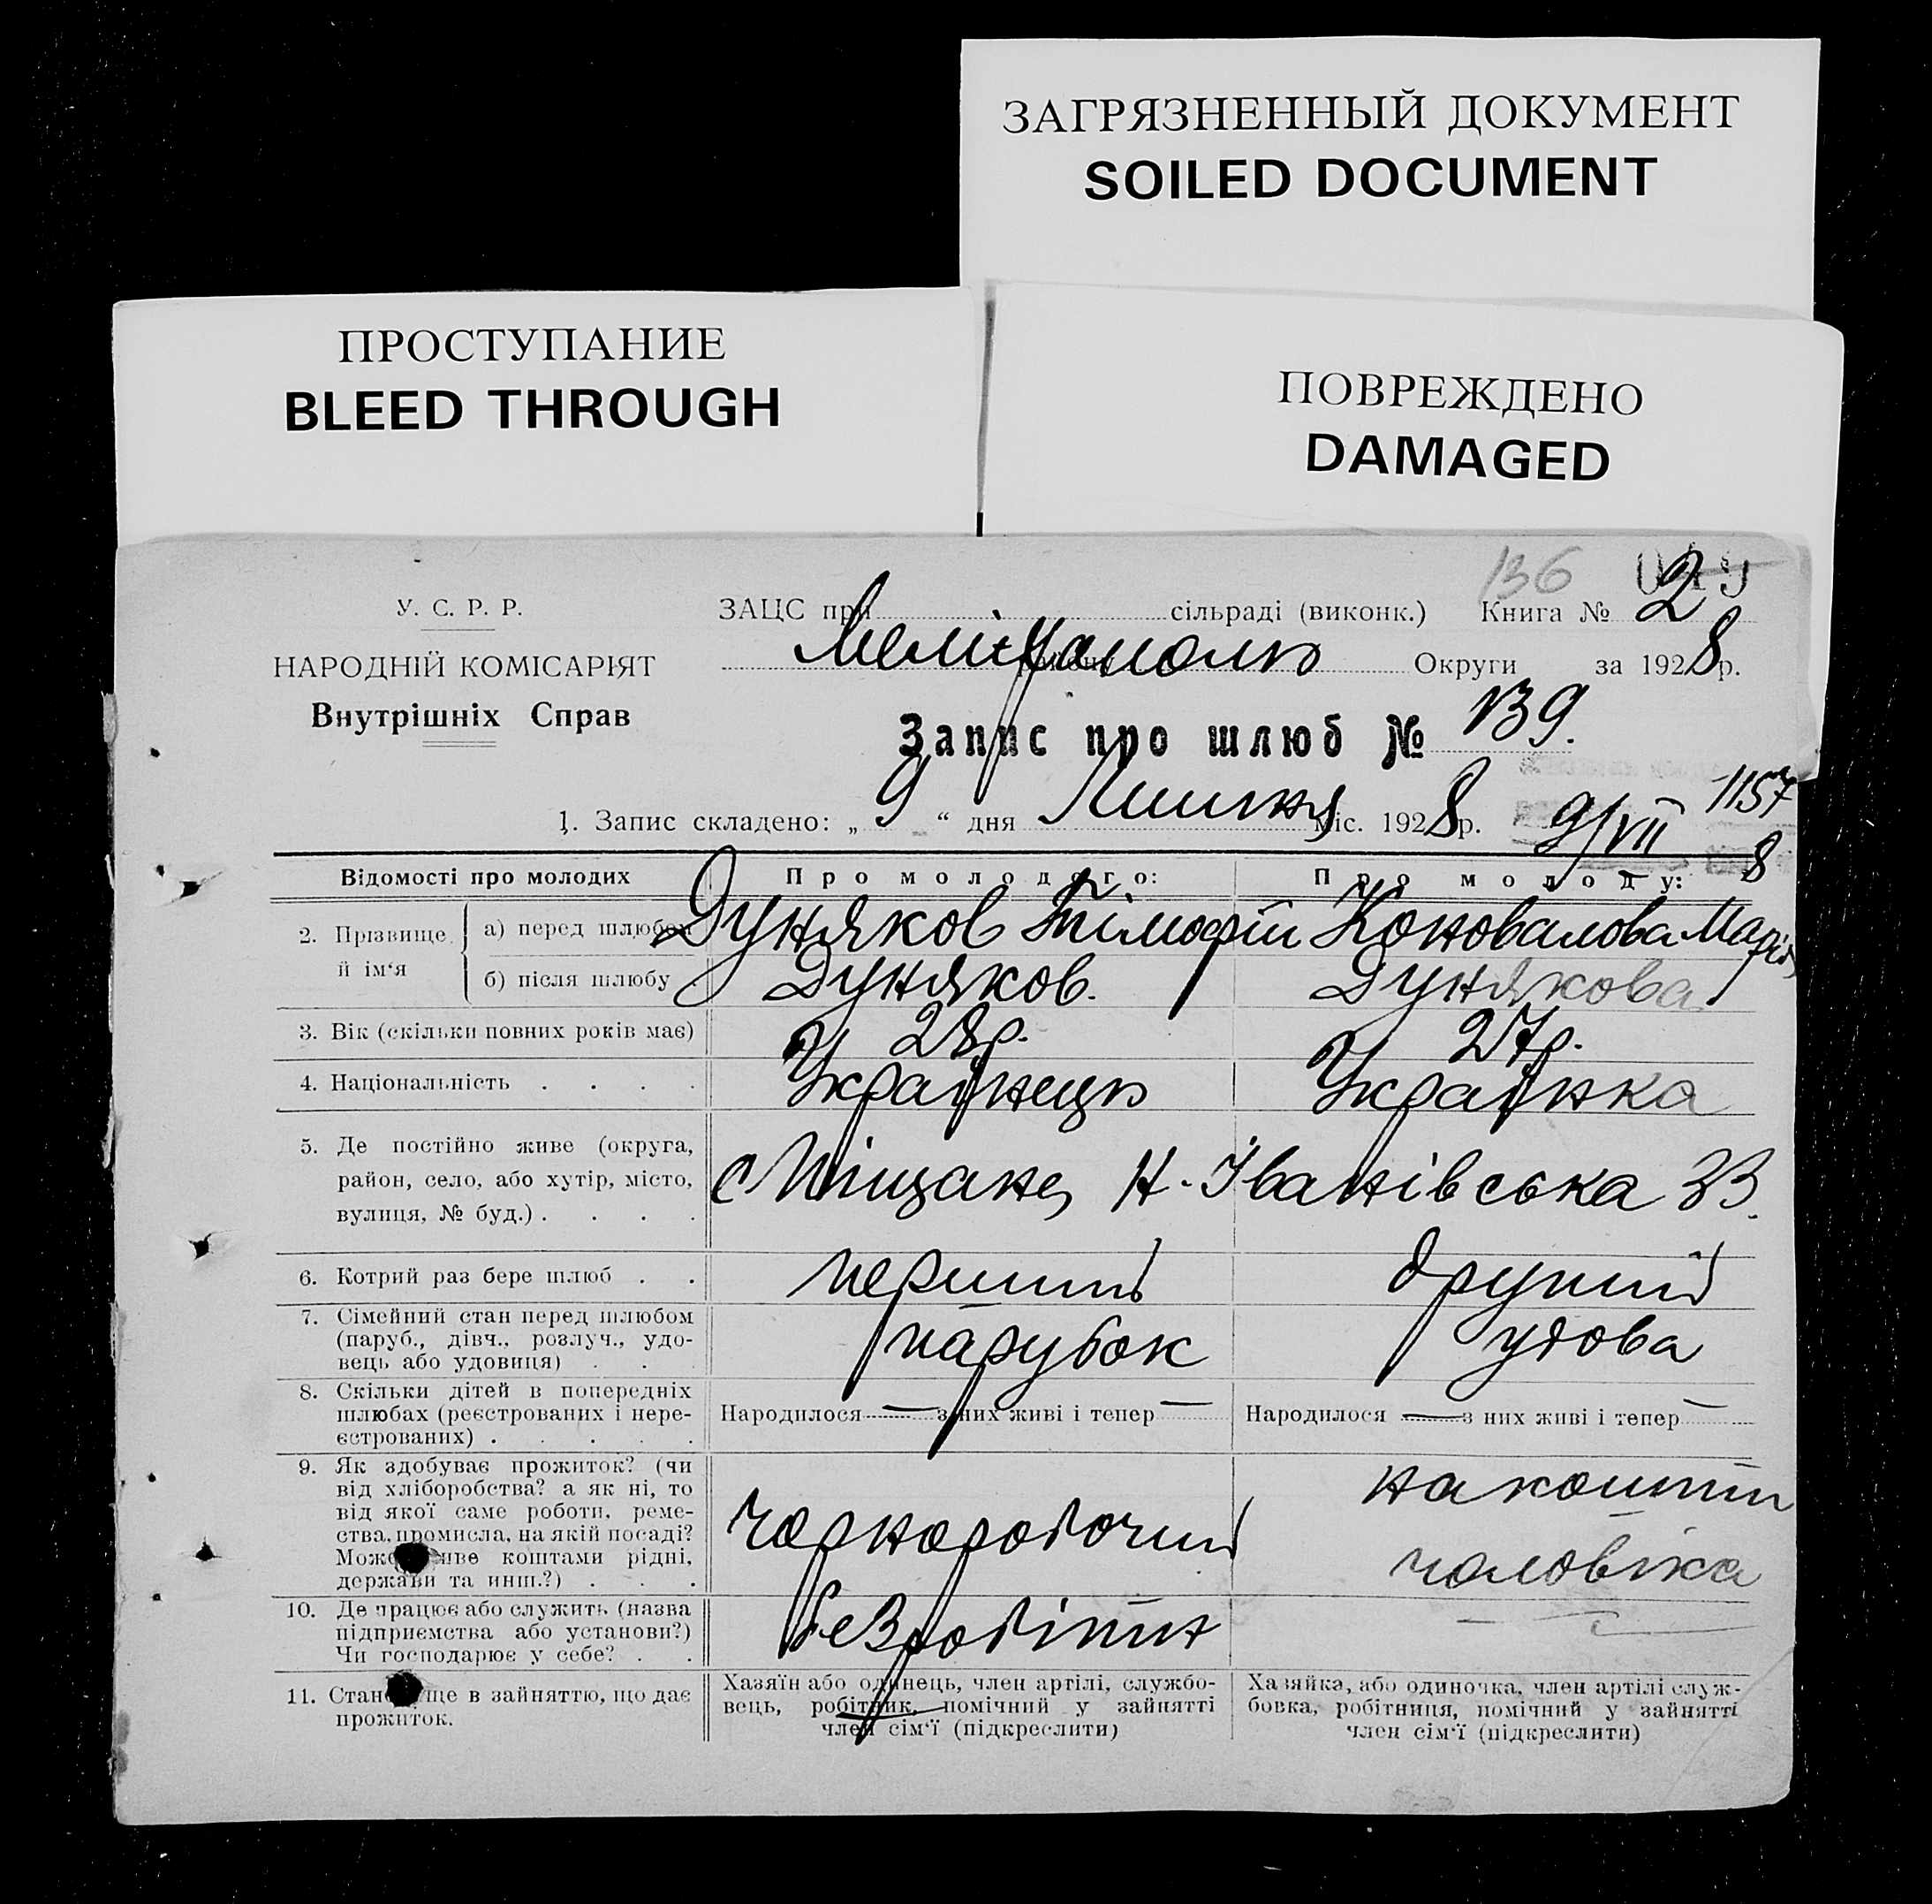 ЗАГРЯЗНЕННЫЙ ДОКУМЕНТ
SOILED DOCUMENT
ПРОСТУПАНИЕ
BLEED THROUGH
ПОВРЕЖДЕНО
DAMAGED
136
У. С. Р. Р.
НАРОДНІЙ КОМІСАРІЯТ
Внутрішніх Справ
ЗАЦС при сільраді (виконк.) Книга № 2
Мелітополь Округи за 1928 р.
Запис про шлюб № 139.
1. Запис складено: „ 9 “ дня Липня міс. 1928 р. 9/VII 1157
8
Відомості про молодих
Про молодого:
Про молоду:
2. Прізвище й ім‘я
а) перед шлюбом
Дуняков Тімофій
Коновалова Марія
б) після шлюбу
Дуняков.
Дунякова
3. Вік (скільки повних років має)
28 р.
27 р.
4. Національність . . . .
Українець
Українка
5. Де постійно живе (округа,
район, село, або хутір, місто,
вулиця, № буд.) . . . .
с Піщане, Н-Іванівська 33.
6. Котрий раз бере шлюб . .
перший
другий
7. Сімейний стан перед шлюбом
(паруб., дівч., розлуч., удо-
вець або удовиця) . .
парубок
удова
8. Скільки дітей в попередніх
шлюбах (реєстрованих і нере-
єстрованих) . . . . .
Народилося — з них живі і тепер —
Народилося — з них живі і тепер —
9. Як здобуває прожиток? (чи
від хліборобства? а як ні, то
від якої саме роботи, реме-
ства, промисла, на якій посаді?
Може живе коштами рідні,
держави та инш.?) . . .
чорноробочий
на кошти
чоловіка
10. Де працює або служить (назва
підприємства або установи?)
Чи господарює у себе? . .
безробітн
—
11. Становище в зайняттю, що дає
прожиток.
Хазяїн або одинець, член артілі, службо-
вець, робітник, помічний у зайнятті
член сім‘ї (підкреслити)
Хазяйка, або одиночка, член артілі служ-
бовка, робітниця, помічний у зайнятті
член сім‘ї (підкреслити)